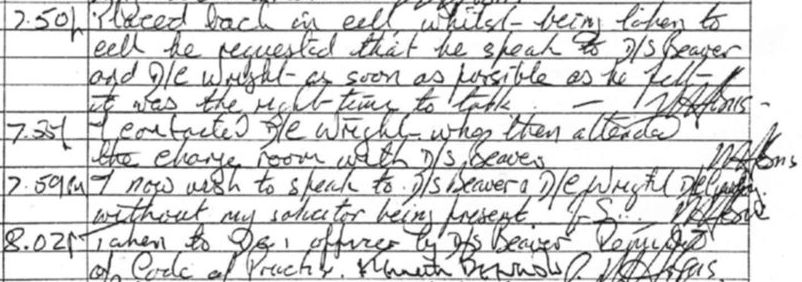 7.50p Placed back in cell, whilst being taken to
cell he requested that he speak to D/S Beaver
and D/C Wright as soon as possible as he felt
it was the right time to talk. —
7.55p I contacted D/C Wright who then attended
the charge room with D/S Beaver
7.59pm I now wish to speak to D/S Beaver D/C Wright
without my solicitor being present
8.02p Taken to officer by D/S Beaver Reminded
of Code of Practice.